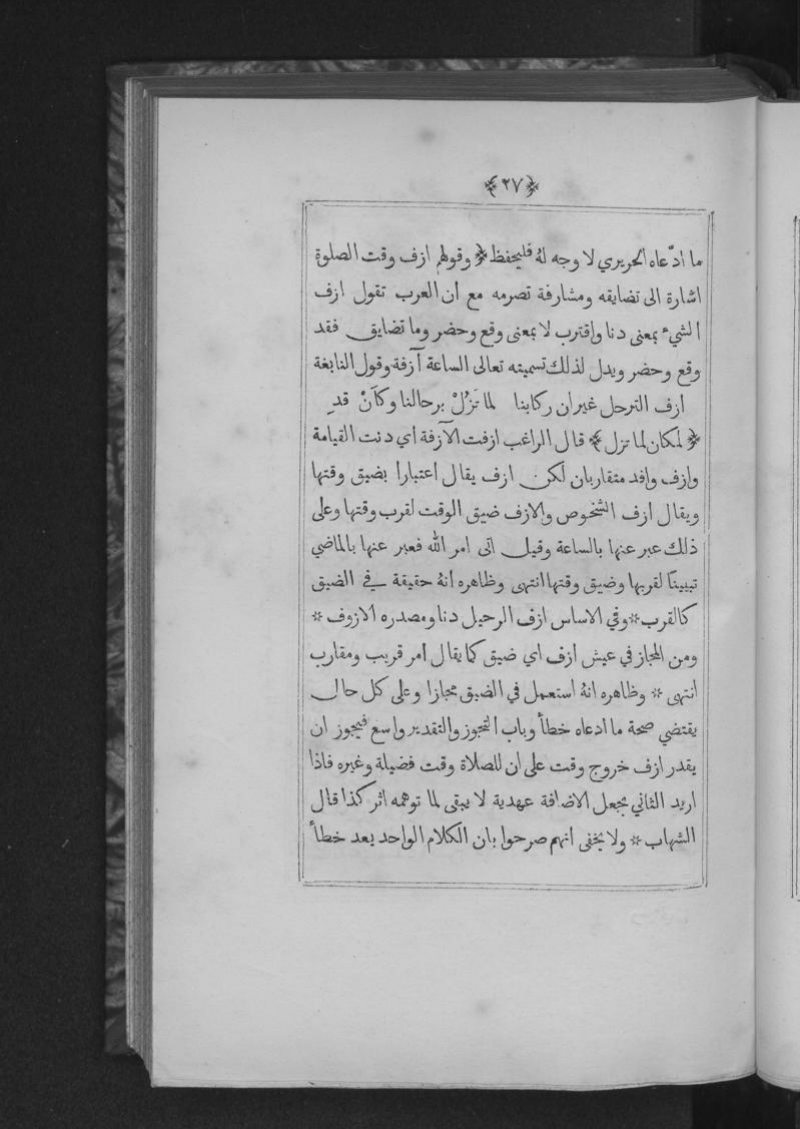 ﴿٢٧﴾
ما ادّعاه الحريري لا وجه لهُ فليحفظ ﴿ وقولهم ازف وقت الصلوة
اشارة الى تضايقه ومشارفة تصرمه مع ان العرب تقول ازف
الشيء بمعنى دنا واقترب لا بمعنى وقع وحضر وما تضايق فقد
وقع وحضر ويدل لذلك تسميته تعالى الساعة آزفة وقول النابغة
ازف الترحل غيران ركابنا لما تَزُلْ برحالنا وكَأَنْ قدِ
﴿ لمكان لما تزل ﴾ قال الراغب ازفت الآزفة اي دنت القيامة
وازف وافد متقاربان لكن ازف يقال اعتبارا بضيق وقتها
ويقال ازف الشخوص والازف ضيق الوقت لقرب وقتها وعلى
ذلك عبر عنها بالساعة وقيل اتى امر الله فعبر عنها بالماضي
تبيينًا لقربها وضيق وقتها انتهى وظاهره انهُ حقيقة في الضيق
كالقرب * وفي الاساس ازف الرحيل دنا ومصدره الازوف *
ومن المجاز في عيش ازف اي ضيق كما يقال امر قريب ومقارب
انتهى * وظاهره انهُ استعمل في الضيق مجازا وعلى كل حال
يقتضي صحة ما ادعاه خطأ وباب التجوز والتقدير واسع فيجوز ان
يقدر ازف خروج وقت على ان للصلاة وقت فضيلة وغيره فاذا
اريد الثاني بجعل الاضافة عهدية لا يبقى لما توهمه اثر كذا قال
الشهاب * ولا يخفى انهم صرحوا بان الكلام الواحد يعد خطأ